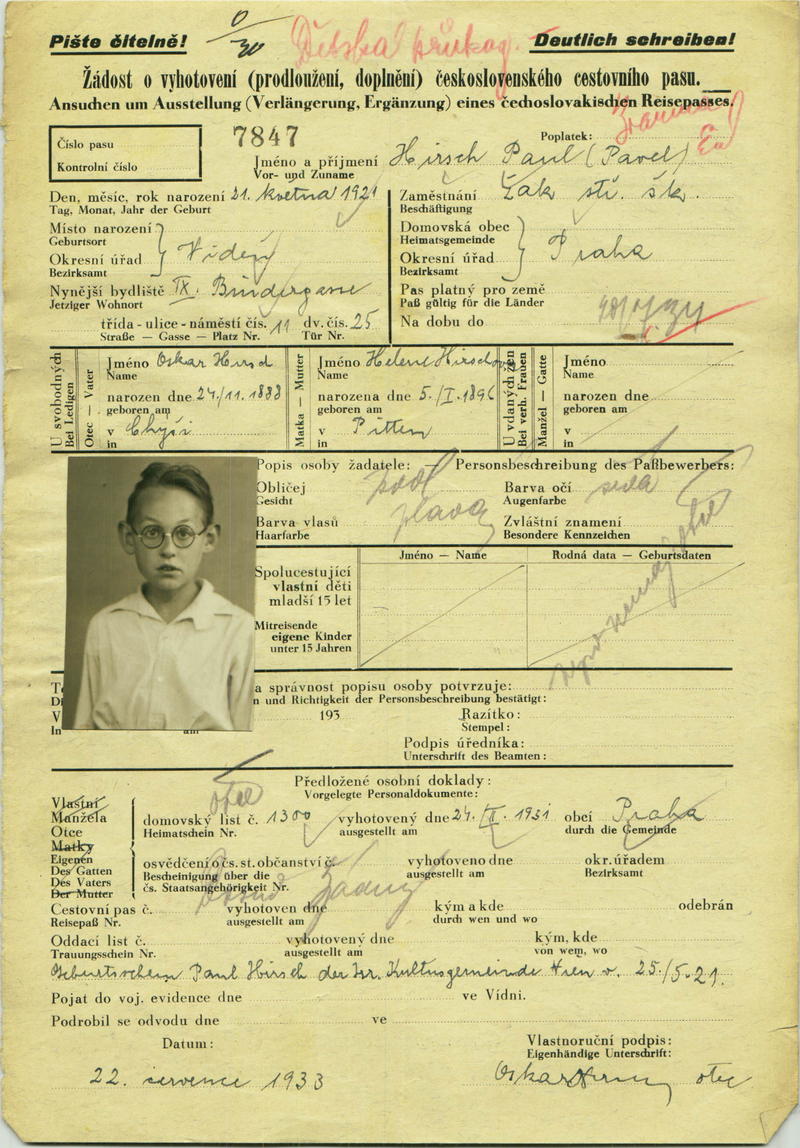 Pište čitelně!
0/30
Dětská průkaz.
Deutlich schreiben!
Žádost o vyhotovení (prodloužení, doplnění) československého cestovního pasu.
Ansuchen um Ausstellung (Verlängerung, Ergänzung) eines čechoslovakischen Reisepasses.
Číslo pasu
Kontrolní číslo
7847
Poplatek:
Jméno a příjmení Hirsch Paul (Pavel)
Vor- und Zuname
Den, měsíc, rok narození 21. května 1921
Tag, Monat, Jahr der Geburt
Zaměstnání Žák stř. šk.
Beschäftigung
Místo narození
Geburtsort
Okresní úřad Vídeň
Bezirksamt
Domovská obec
Heimatsgemeinde
Okresní úřad Praha
Bezirksamt
Nynější bydliště IX.
Jetziger Wohnort
Pas platný pro země
Paß gültig für die Länder
třída - ulice - náměstí čís. 11 dv. čís. 25
Straße — Gasse — Platz Nr. Tür Nr.
Na dobu do
U svobodných
Bei Ledigen
Otec — Vater
Jméno Oskar Hirsch
Name
narozen dne 24./11. 1888
geboren am
v Chyši
in
Matka — Mutter
Jméno Helene Hirschov
Name
narozena dne 5./I. 1896
geboren am
v Pitten
in
U vdaných žen
Bei verh. Frauen
Manžel — Gatte
Jméno
Name
narozen dne
geboren am
v
in
Popis osoby žadatele: — Personsbeschreibung des Paßbewerbers:
Obličej podl
Gesicht
Barva očí šedá
Augenfarbe
Barva vlasů plavá
Haarfarbe
Zvláštní znamení
Besondere Kennzeichen
Jméno — Name
Rodná data — Geburtsdaten
Spolucestující
vlastní děti
mladší 15 let
Mitreisende
eigene Kinder
unter 15 Jahren
a správnost popisu osoby potvrzuje:
n und Richtigkeit der Personsbeschreibung bestätigt:
V 193
In am
Razítko:
Stempel:
Podpis úředníka:
Unterschrift des Beamten:
Předložené osobní doklady:
Vorgelegte Personaldokumente:
Vlastní
Manžela
Otce
Matky
Eigenen
Des Gatten
Des Vaters
Der Mutter
otce
domovský list č. 1300 vyhotovený dne 24./II. 1931 obcí Praha
Heimatschein Nr. ausgestellt am durch die Gemeinde
osvědčení o čs. st. občanství č. vyhotoveno dne okr. úřadem
Bescheinigung über die ausgestellt am Bezirksamt
čs. Staatsangehörigkeit Nr.
Cestovní pas č. vyhotoven dne kým a kde odebrán
Reisepaß Nr. ausgestellt am durch wen und wo
Oddací list č. vyhotovený dne kým, kde
Trauungsschein Nr. ausgestellt am von wem, wo
Geburtsschein Paul Hirsch der Isr. Kultusgemeinde Wien v. 25./5.21.
Pojat do voj. evidence dne ve Vídni.
Podrobil se odvodu dne ve
Datum:
Vlastnoruční podpis:
Eigenhändige Unterschrift:
22. července 1933
Oskar Hirsch otec